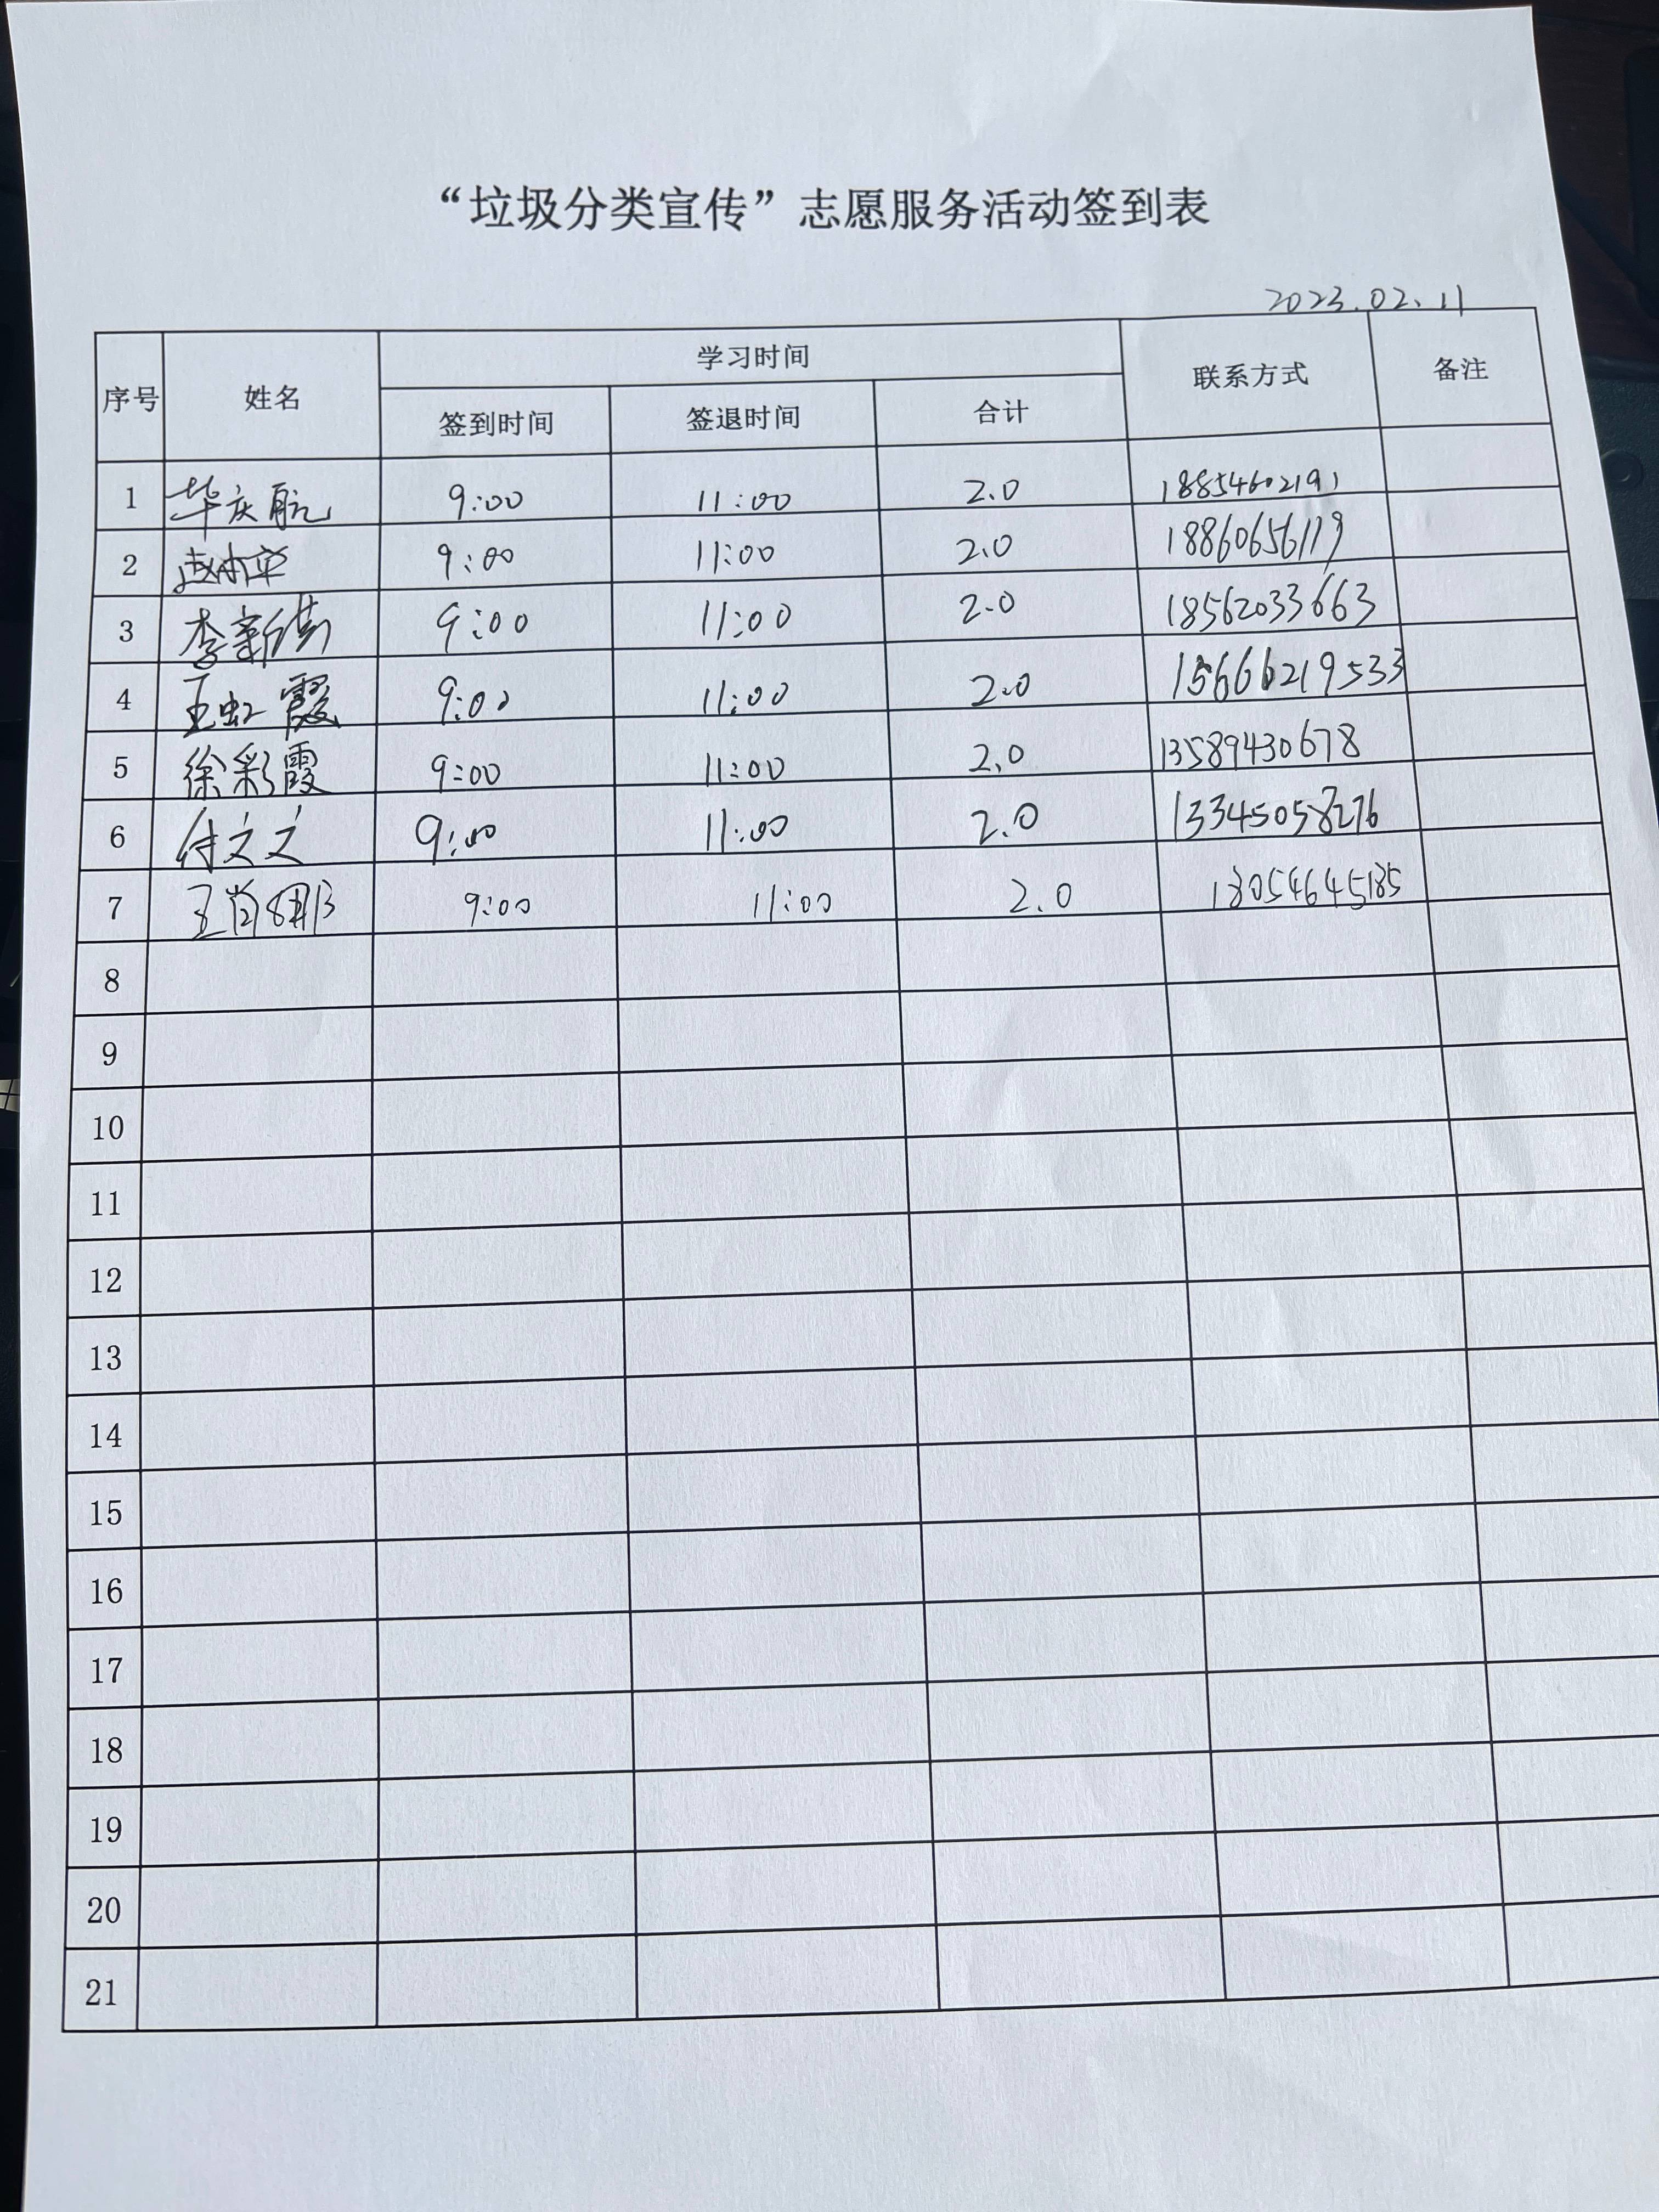 “垃圾分类宣传”志愿服务活动签到表
2023.02.11
序号 姓名 学习时间 联系方式 备注
签到时间 签退时间 合计
1 华庆航 9:00 11:00 2.0 18854602191
2 9:00 11:00 2.0 18860656119
3 李新 9:00 11:00 2.0 18562033663
4 王虹霞 9:00 11:00 2.0 15666219533
5 徐彩霞 9:00 11:00 2.0 13589430678
6 付文文 9:00 11:00 2.0 13345058276
7 王肖娜 9:00 11:00 2.0 18054645185
8
9
10
11
12
13
14
15
16
17
18
19
20
21